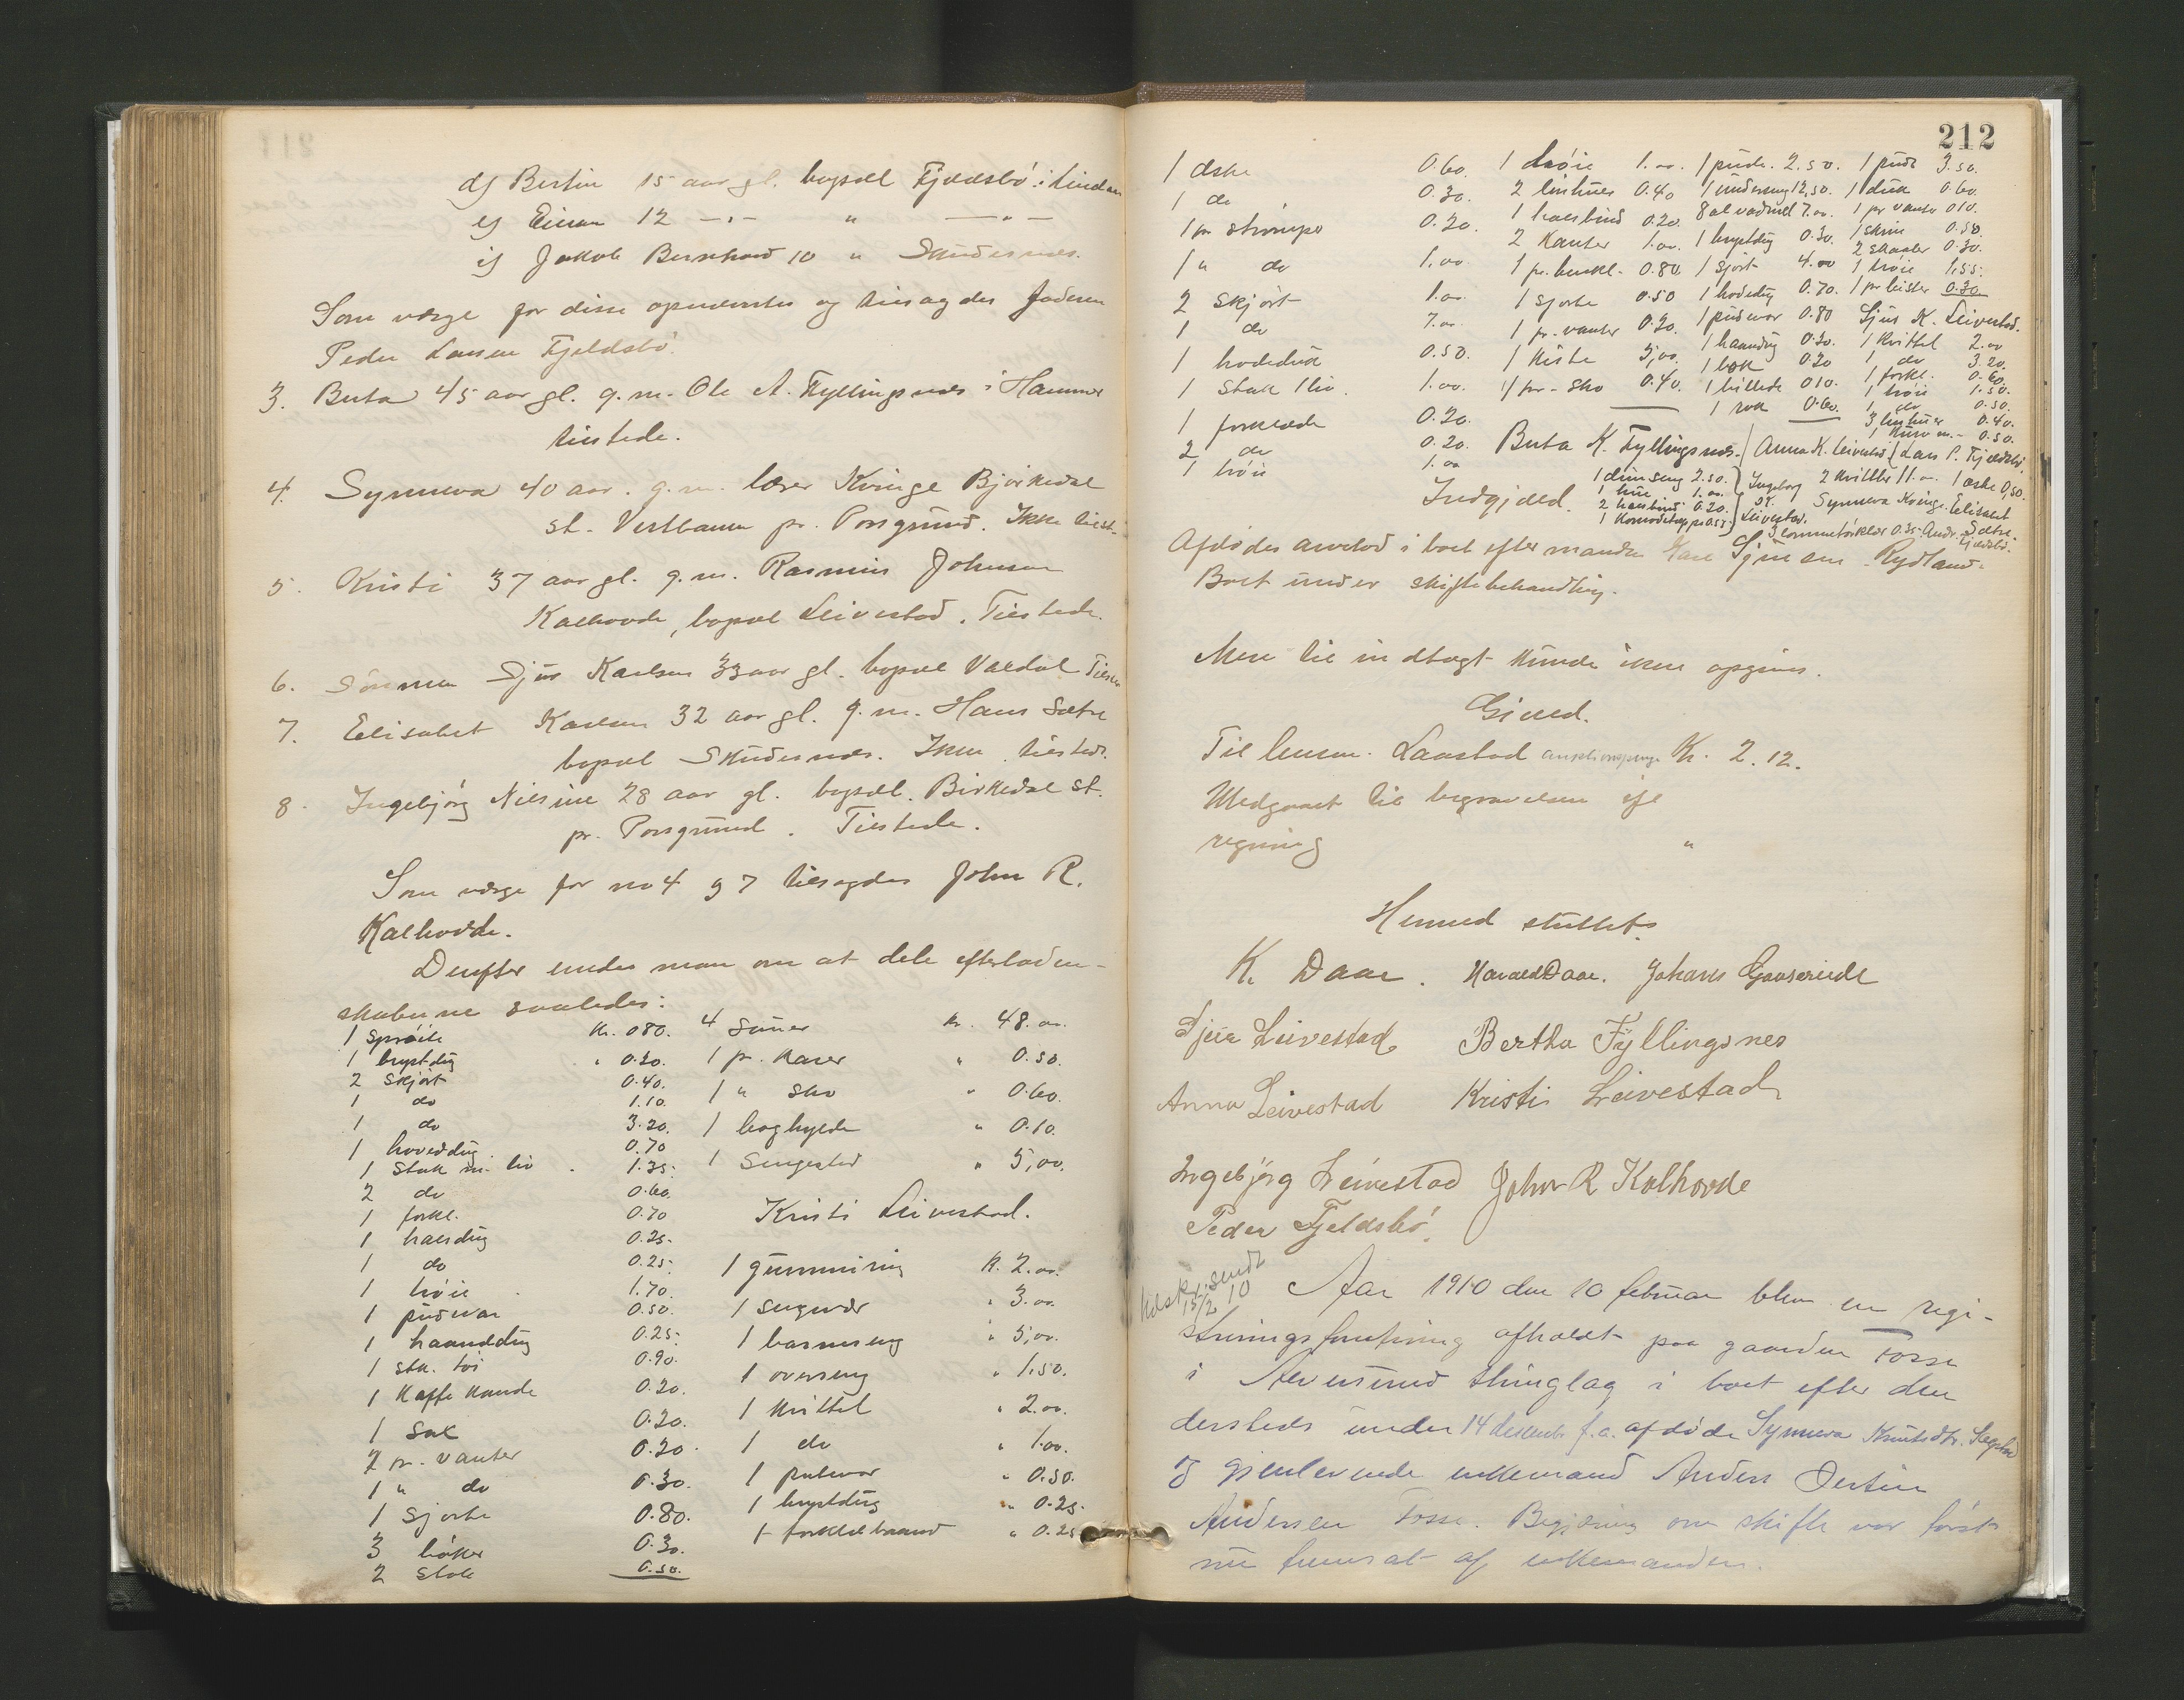 d) Bertin 15 aar gl. bopæl Fjeldsbö i Lindaas
e) Einar 12 -"- " -"-
i) Jakob Bernhard 10 " Skudesnes.
Som værge for disse opnævntes og tilsagdes faderen
Peder Larsen Fjeldsbö.
3. Berta 45 aar gl. g.m. Ole A. Fyllingsnes i Hammer
tilstede.
4. Synneva 40 aar. g.m. lærer Kvinge Björkedal
st. Vestbanen pr. Porsgrund. Ikke tilst.
5. Kristi 37 aar gl. g.m. Rasmus Johnsen
Kalhovde, bopæl Leivestad. Tilstede.
6. Sönnen Sjur Karlsen 33 aar gl. bopæl Valdal Tilst.
7. Elisabet Karlsen 32 aar gl. g.m. Hans Sætre
bopæl Skudesnes. Ikke tilstede.
8. Ingebjörg Nilsine 28 aar gl. bopæl. Birkedal st.
pr. Porsgrund. Tilstede.
Som værge for no 4 og 7 tilsagdes John R.
Kalhovde.
Derefter enedes man om at dele efterladen-
skaberne saaledes:
1 Spröite Kr. 080.
1 brystdug " 0.20.
2 Skjört 0.40.
1 do 1.10.
1 do 3.20.
1 hoveddug 0.70
1 Stak m. liv 1.35.
2 do 0.60.
1 forkl. 0.70
1 halsdug 0.25.
1 do 0.25.
1 tröie 1.70.
1 pudevar 0.50.
1 haanddug 0.25.
1 stk. töi 0.90.
1 Kaffekande 0.20.
1 Sæl 0.20.
2 pr. vanter 0.20.
1 " do 0.30.
1 Sjorte 0.80.
3 böker 0.30.
2 Stole 0.50.
4 Sauer Kr. 48.00.
1 pr. Karer " 0.50.
1 " Sko " 0.60.
1 boghylde " 0.10.
1 Sengested " 5,00.
Kristi Leivestad.
1 gummiring K. 2.00.
1 sengevær " 3.00.
1 barneseng " 5,00.
1 overseng " 1.50.
1 Kvittel " 2.00.
1 do " 1.00.
1 putevar " 0.50.
1 brystdug " 0.25.
1 forklebaand " 0.25
212
1 æske 0.60.
1 do 0.30.
1 pr strömper 0.20.
1 " do 1.00
2 Skjört 1.00.
1 do 7.00.
1 hodedug 0.50.
1 Stak 1 liv. 1.00.
1 forklæde 0.20.
2 do 0.20.
1 tröie 1.00
1 tröie 1.00.
2 linhuer 0.40
1 halsbind 0.20.
2 Kanter 1.00.
1 pr. buxkl. 0.80.
1 Sjorte 0.50
1 pr. vanter 0.20.
1 Kiste 5,00.
1 pr. Sko 0.40.
1 pude. 2.50.
1 underseng 12,50.
8 al vadmel 7.00.
1 brystdug 0.30.
1 Sjört 4.00
1 hodedug 0.70.
1 pudevar 0.80
1 haanddug 0.20.
1 bok 0.20
1 billede 010.
1 rok 0.60.
1 pude 3.50.
1 duk 0.60.
1 pr vanter 010.
1 Skrin 0.50.
2 skaaler 0.30.
1 tröie 1,55.
1 pr leister 0.30
Sjur K. Leivestad.
1 Kvittel 2.00
1 do 3.20.
1 forkl. 0.60.
1 tröie 1.50.
1 do 0.50.
3 linhuer 0.40.
0.50.
Berta K. Fyllingsnes. Anna K. Leivestad Lars P. Fjeldsbö.
1 2.50.
1 hue 1.00.
2 halsbind 0.20.
Ingeborg K. Leivestad.
2 Kvittler 11.00. 1 æske 0,50.
Synneva Kvinge. Elisabet Sætre.
3 lommetörklær 0.35 Andr. Fjeldsbö.
Indgjæld.
Afdödes arvelod i boet efter manden Karl Sjursen Rydland.
Boet under skiftebehandling.
Mere til indtægt kunde ikke opgives.
Gjæld.
Til lensm. Laastad auktionspenge Kr. 2.12.
Medgaaet til begravelsen efl
regning "
Hermed sluttet.
K. Daae. Harald Daae. Johans
Sjur Leivestad Bertha Fyllingsnes
Anna Leivestad Kristi Leivestad
Ingebjörg Leivestad John R Kolhovde
Peder Fjeldsbö.
sendt
15/2 10
Aar 1910 den 10 februar blev en regi-
streringsforretning afholdt paa gaarden Fosse
i Alversund thinglag i boet efter den
dersteds under 14 decemb. f.a. afdöde Synneva Knutsdtr.
og gjenlevende enkemand Anders Oertin
Andersen Fosse. Begjæring om skifte var först
nu fremsat af enkemanden.